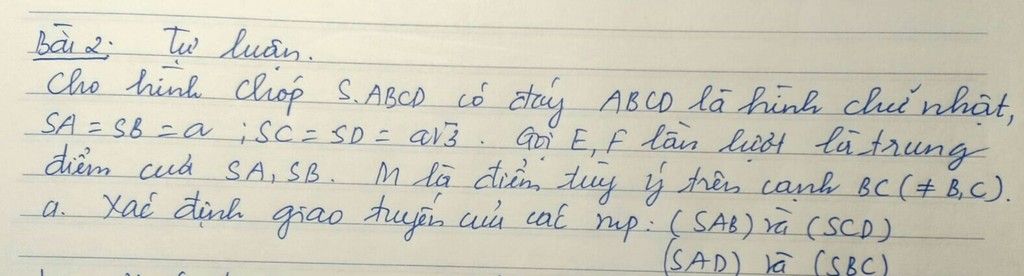 Bài 2: Tự luận.
Cho hình chóp S.ABCD có đáy ABCD là hình chữ nhật,
SA = SB = a ; SC = SD = a√3. Gọi E, F lần lượt là trung
điểm của SA, SB. M là điểm tùy ý trên cạnh BC (≠ B, C).
a. Xác định giao tuyến của các mp: (SAB) và (SCD)
(SAD) và (SBC)